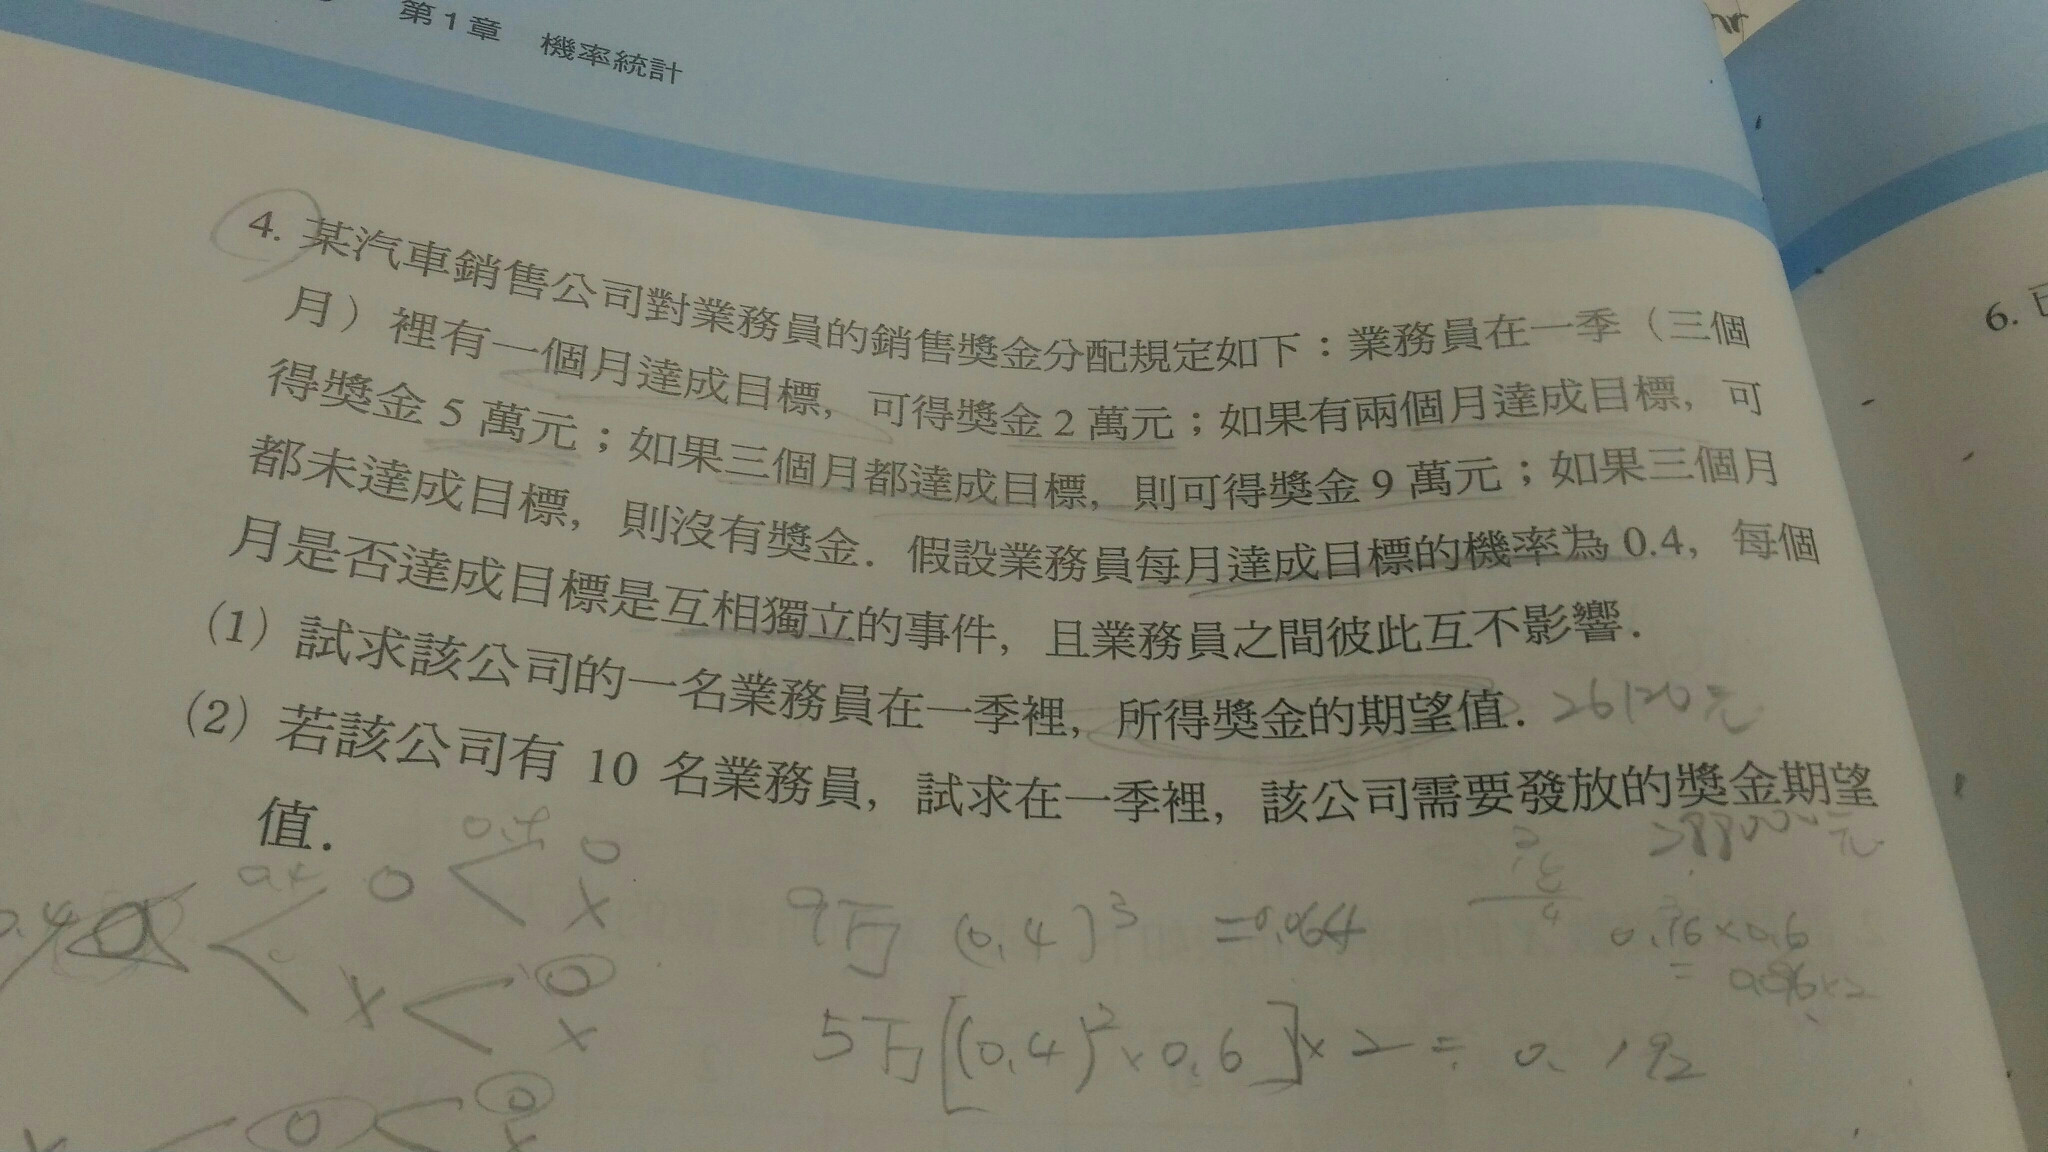 第1章 機率統計
4. 某汽車銷售公司對業務員的銷售獎金分配規定如下：業務員在一季（三個
月）裡有一個月達成目標，可得獎金 2 萬元；如果有兩個月達成目標，可
得獎金 5 萬元；如果三個月都達成目標，則可得獎金 9 萬元；如果三個月
都未達成目標，則沒有獎金．假設業務員每月達成目標的機率為 0.4，每個
月是否達成目標是互相獨立的事件，且業務員之間彼此互不影響．
(1) 試求該公司的一名業務員在一季裡，所得獎金的期望值．26120元
(2) 若該公司有 10 名業務員，試求在一季裡，該公司需要發放的獎金期望
值．
6. 已
0.4
0.4
0.4
9万 (0.4)³ =0.064
5万[(0.4)²×0.6]×2= 0.192